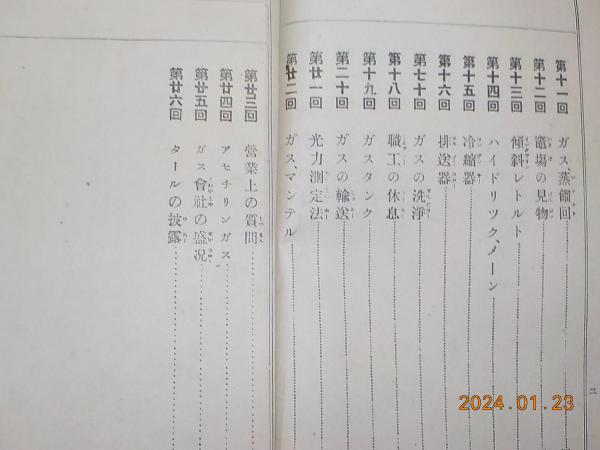 第十一回 ガス、蒸餾回
第十二回 竈塲の見物
第十三回 傾斜レトルト
第十四回 ハイドリツク、メーン
第十五回 冷縮器
第十六回 排送器
第十七回 ガスの洗淨
第十八回 職工の休息
第十九回 ガスタンク
第二十回 ガスの輸送
第廿一回 光力測定法
第廿二回 ガス、マンテル
第廿三回 營業上の質問
第廿四回 アセチリンガス
第廿五回 ガス會社の盛况
第廿六回 タールの披露
2024.01.23